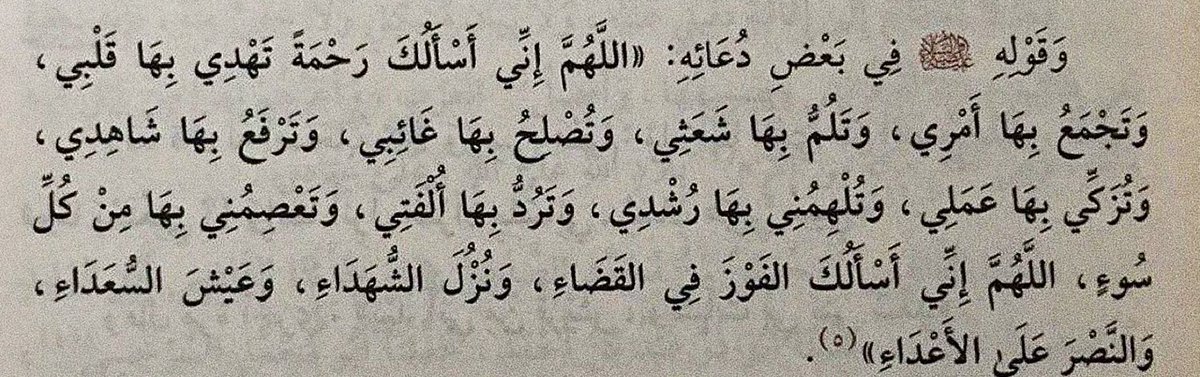 وَقَوْلِهِ ﷺ فِي بَعْضِ دُعَائِهِ: «اللَّهُمَّ إِنِّي أَسْأَلُكَ رَحْمَةً تَهْدِي بِهَا قَلْبِي،
وَتَجْمَعُ بِهَا أَمْرِي، وَتَلُمُّ بِهَا شَعَثِي، وَتُصْلِحُ بِهَا غَائِبِي، وَتَرْفَعُ بِهَا شَاهِدِي،
وَتُزَكِّي بِهَا عَمَلِي، وَتُلْهِمُنِي بِهَا رُشْدِي، وَتَرُدُّ بِهَا أُلْفَتِي، وَتَعْصِمُنِي بِهَا مِنْ كُلِّ
سُوءٍ، اللَّهُمَّ إِنِّي أَسْأَلُكَ الفَوْزَ فِي القَضَاءِ، وَنُزُلَ الشُّهَدَاءِ، وَعَيْشَ السُّعَدَاءِ،
وَالنَّصْرَ عَلَى الأَعْدَاءِ»(٥).